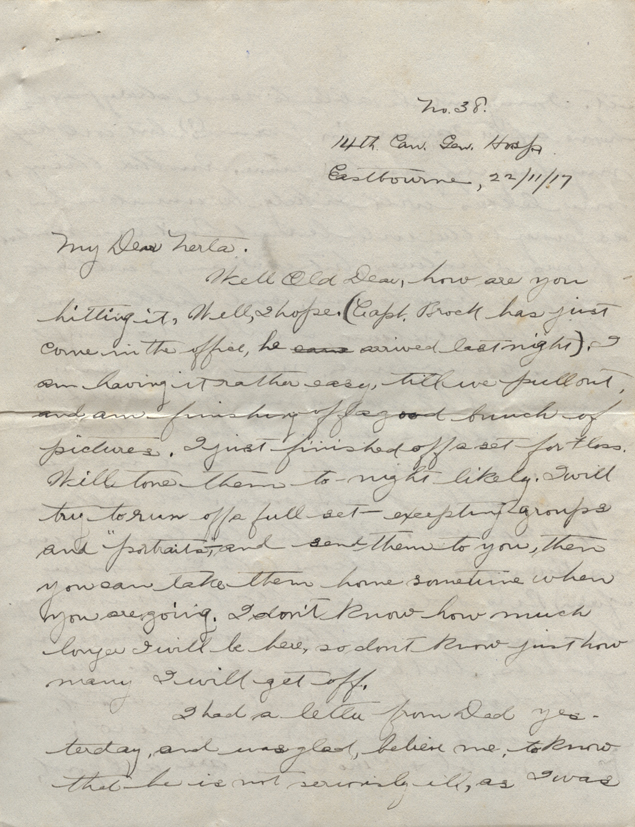 No. 38.
14th Can. Gen. Hosp.
Eastbourne, 22/11/17
My Dear Nerta.
Well Old Dear, how are you
hitting it, Well, I hope. (Capt. Brock has just
come in the office, he came arrived last night). I
am having it rather easy, till we pull out,
and am finishing off a good bunch of
pictures. I just finished off a set for Floss.
Will tone them to-night likely. I will
try to run off a full set excepting groups
and "portraits", and send them to you, then
you can take them home sometime when
you are going. I don't know how much
longer I will be here, so dont know just how
many I will get off.
I had a letter from Dad yes-
terday, and was glad, believe me, to know
that he is not seriously ill, as I was